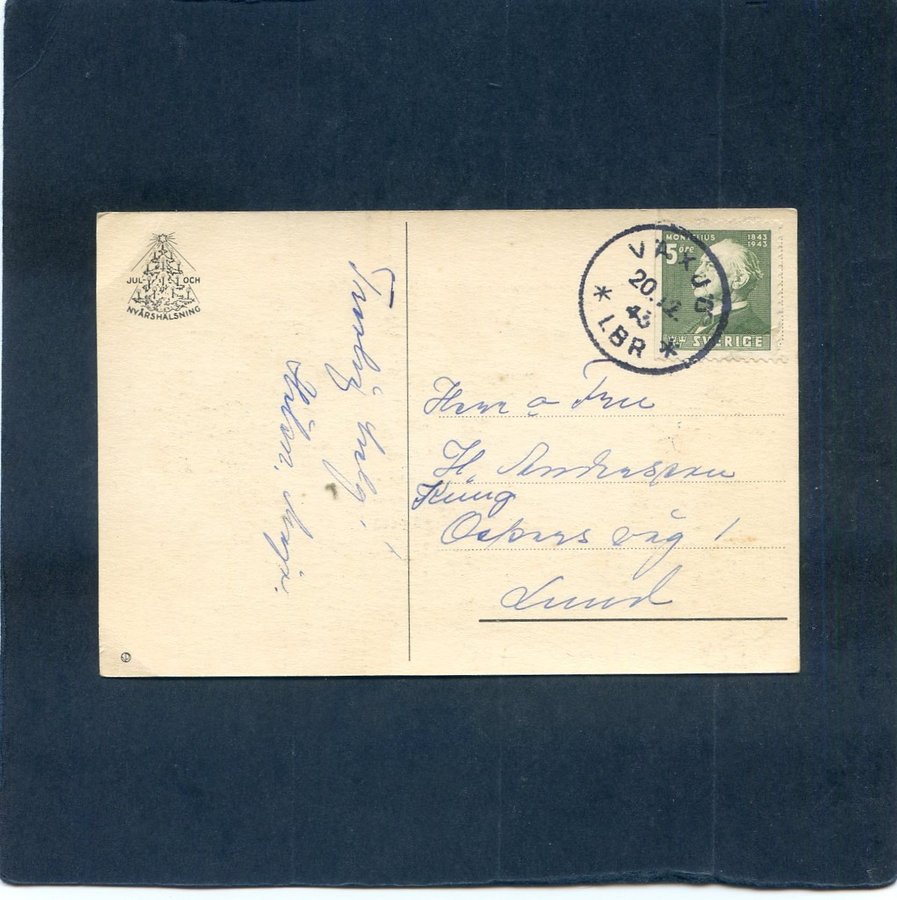 JUL OCH
NYÅRSHÄLSNING
Trevlig helg!
Håkan
MONTELIUS 1843
5 öre 1943
SVERIGE
VÄXJÖ
20.12.
43
* LBR *
Herr o Fru
H. Andersson
Kung
Oskars väg 1
Lund